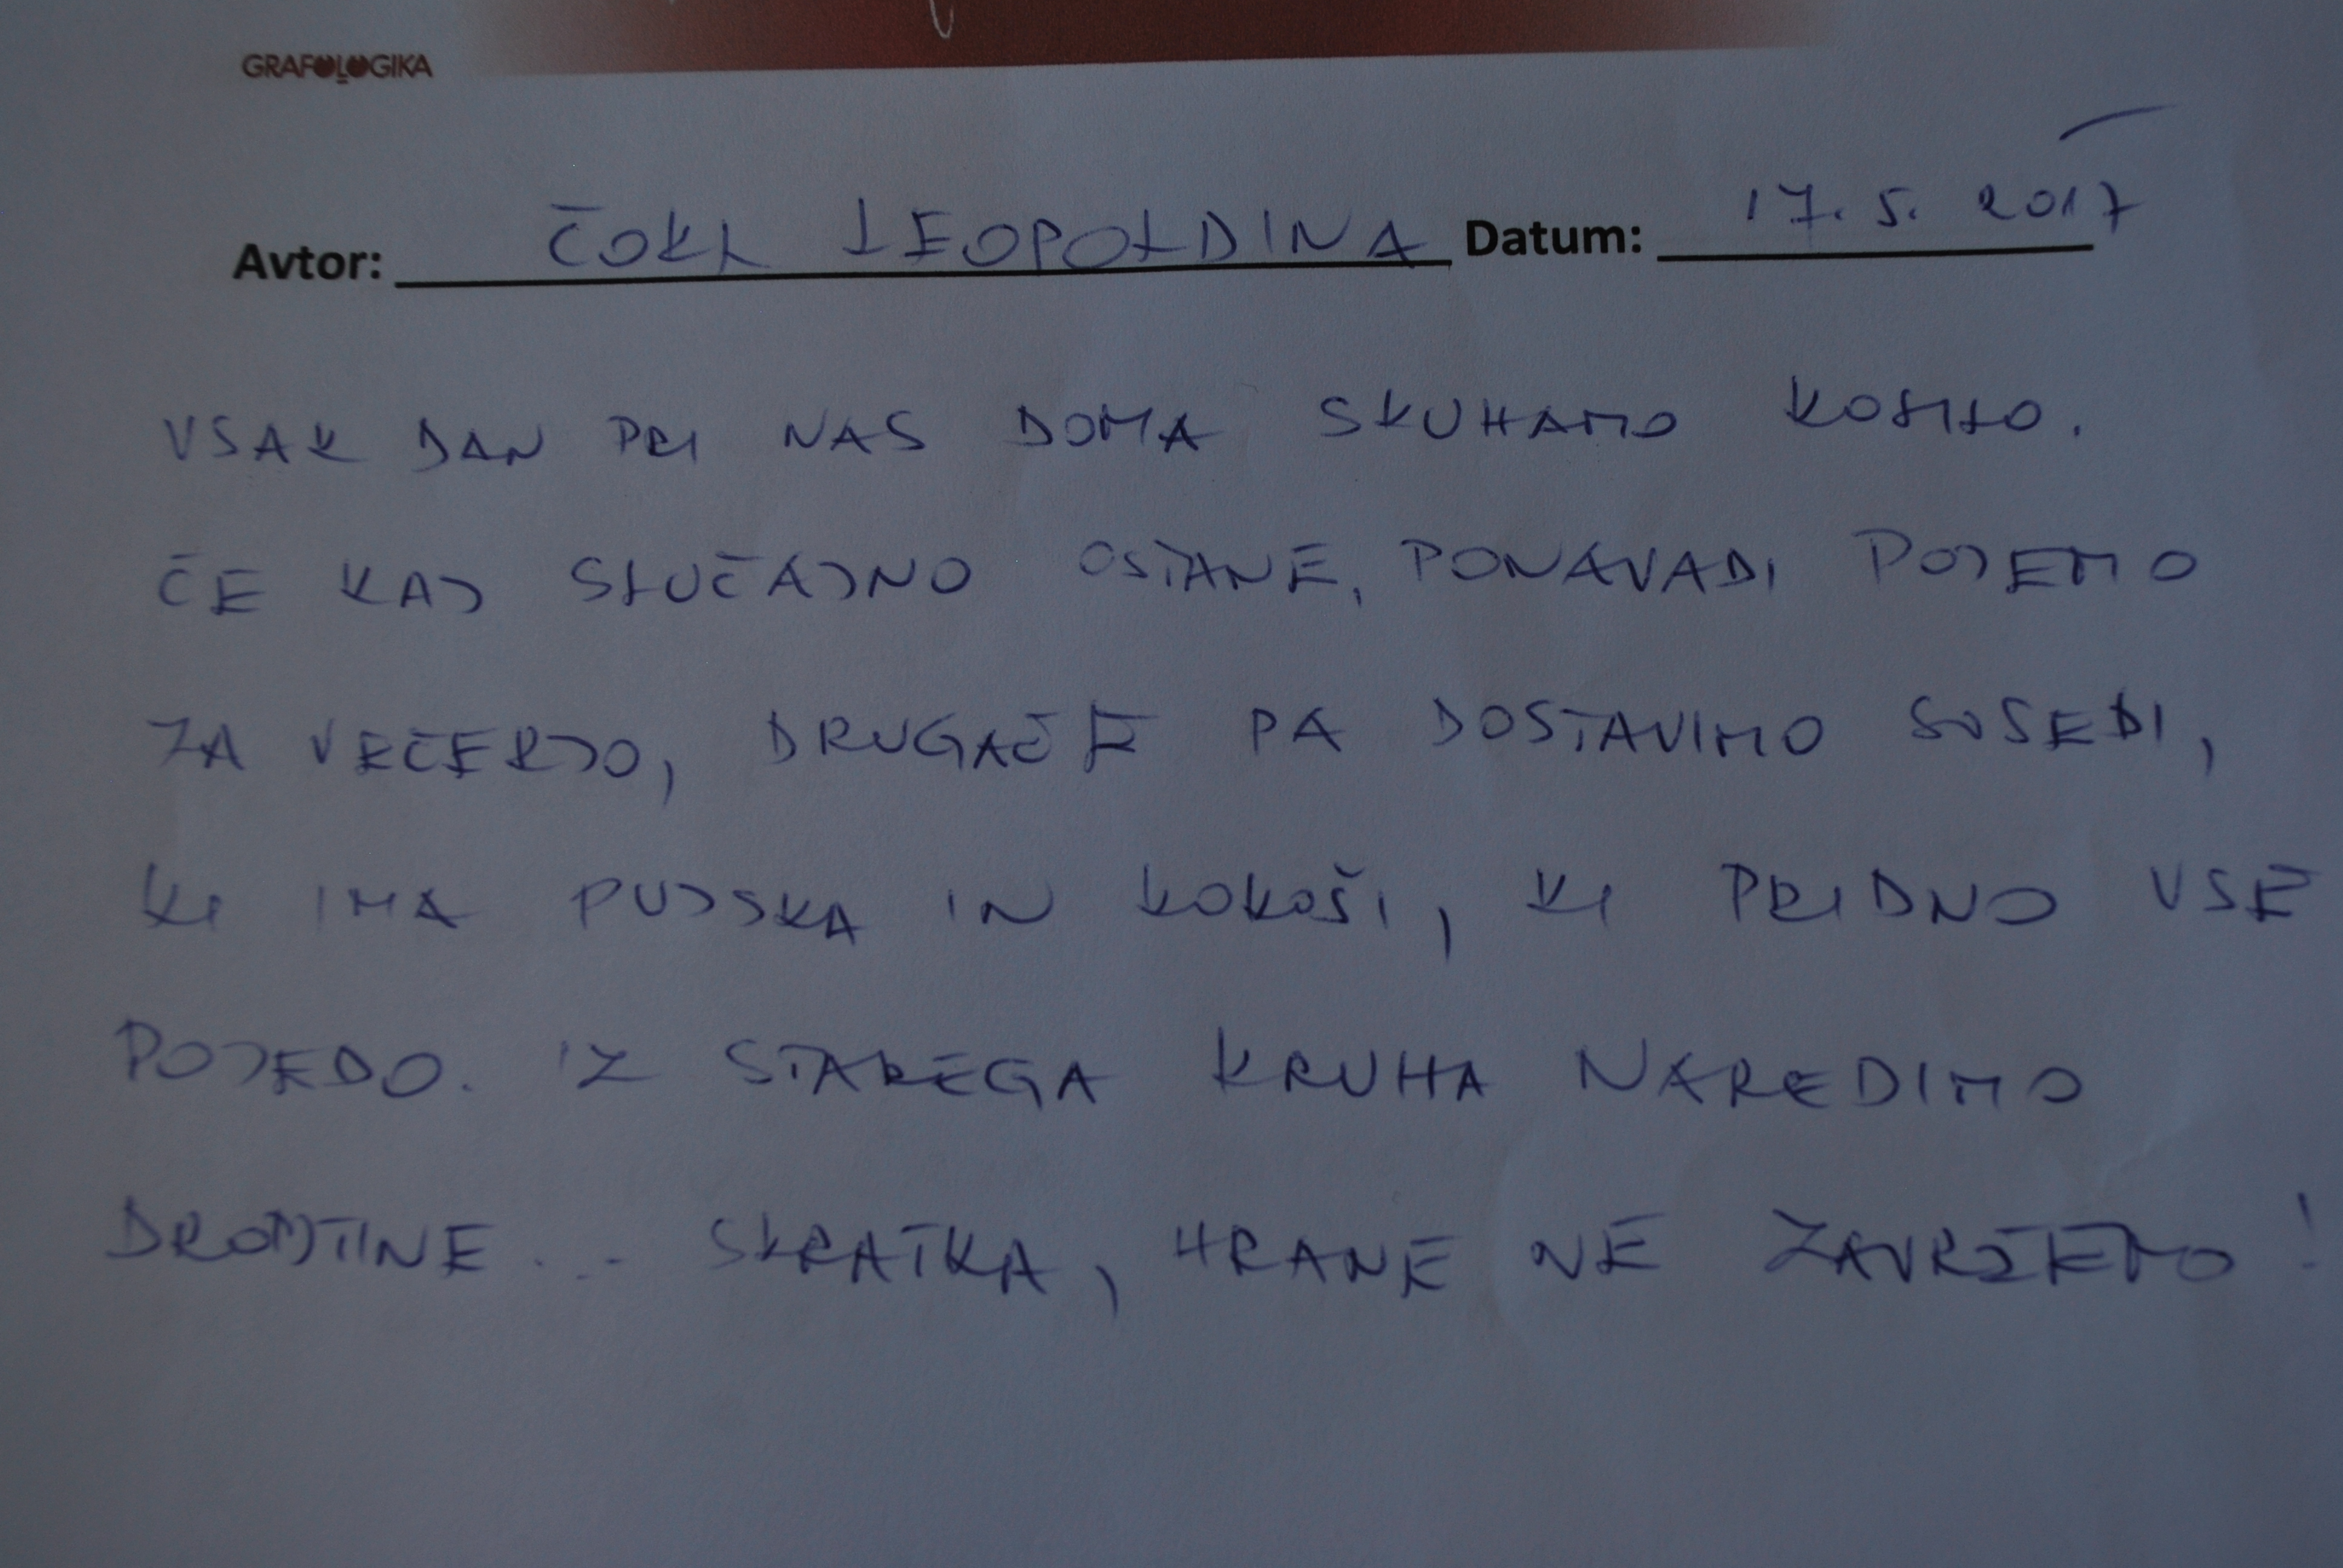 GRAFOLOGIKA
Avtor: ČOKL LEOPOLDINA Datum: 17. 5. 2017
VSAK DAN PRI NAS DOMA SKUHAMO KOSILO.
ČE KAJ SLUČAJNO OSTANE, PONAVADI POJEMO
ZA VEČERJO, DRUGAČE PA DOSTAVIMO SOSEDI,
KI IMA PUJSKA IN KOKOŠI, KI PRIDNO VSE
POJEDO. IZ STAREGA KRUHA NAREDIMO
DROBTINE... SKRATKA, HRANE NE ZAVRŽEMO!